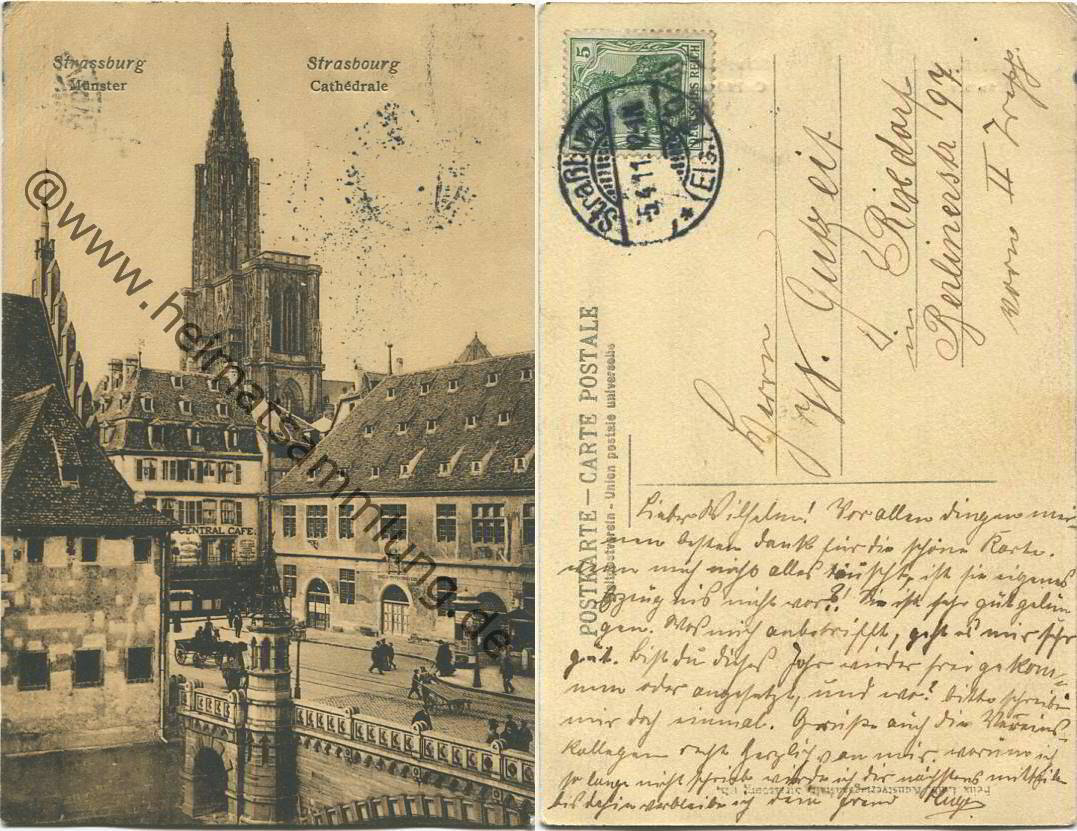 Strassburg
Münster
Strasbourg
Cathédrale
@www.heimatsammlung.de
CENTRAL CAFE.
5
DEUTSCHES REICH
Straßburg
5.4.11. 12-1N
* (Els.)
POSTKARTE – CARTE POSTALE
Weltpostverein - Union postale universelle
Herrn
W. Gutzeit
in Rixdorf
Berlinerstr 97.
vorn II Trepp.
Lieber Wilhelm! Vor allen dingen mei-
nen besten dank für die schöne Karte.
wenn mich nicht alles täuscht, ist sie eigenes
Erzeugnis nicht wahr?! Sie ist sehr gut gelun-
gen. Was mich anbetrifft, geht es mir sehr
gut. bist du dieses Jahr wieder frei gekom-
men oder angesetzt, und wo? bitte schreibe
mir doch einmal. Grüße auch die Vereins-
kollegen recht herzlich von mir. warum ich
so lange nicht schrieb werde ich dir nächstens mitteilen
bis dahin verbleibe ich dein freund